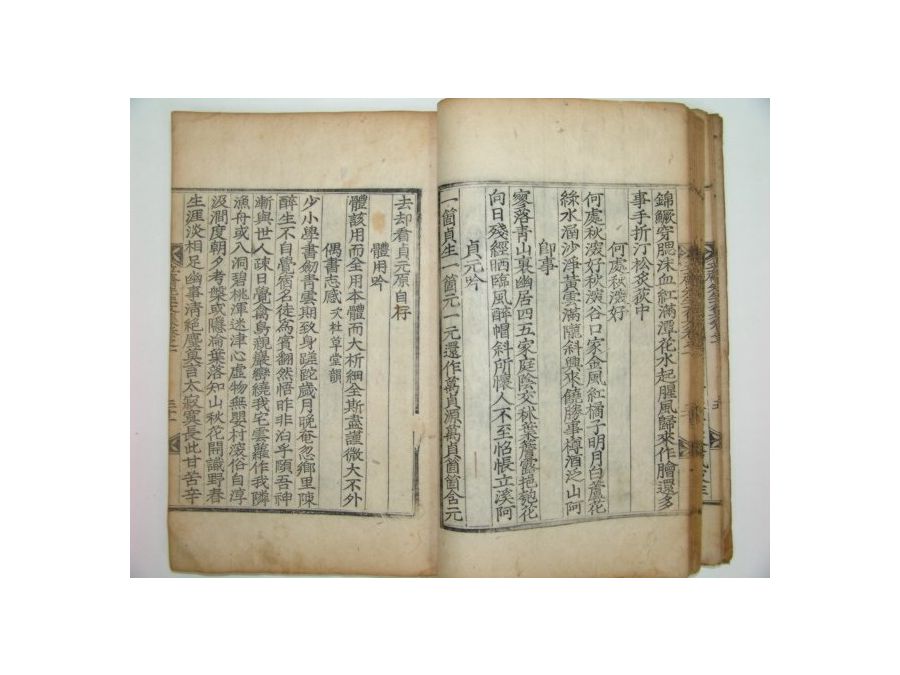 錦鱖穿腮沫血紅滿潭花水起腥風歸來作膾還多
事手折汀松炙荻中
何處秋㴱好
何處秋㴱好秋㴱谷口家金風紅橘子明月白蘆花
綠水涵沙淨黃雲滿隴斜興來饒勝事樽酒泛山阿
卽事
寥落青山裏幽居四五家庭陰交秫葉露挹匏花
向日殘經晒臨風醉帽斜所懷人不至怊悵立溪阿
貞元吟
一箇貞生一箇元一元還作萬貞源萬貞箇箇含元
去却看貞元原自存
體用吟
體該用而全用本體而大析細全斯盡謹微大不外
偶書志感 次杜草堂韻
少小學書劒青雲期致身蹉跎歲月晚奄忽鄉里陳
醉生不自覺宿名徒為賓翻然悟昨非泊乎頤吾神
漸與世人疎日覺禽鳥親巖巒繞我宅雲蘿作我隣
漁舟或入洞碧桃渾迷津心虛物無嬰村深俗自淳
汲澗度朝夕考槃或隱淪葉落知山秋花開識野春
生涯淡相足幽事清絶塵莫言太寂寞長此甘苦辛